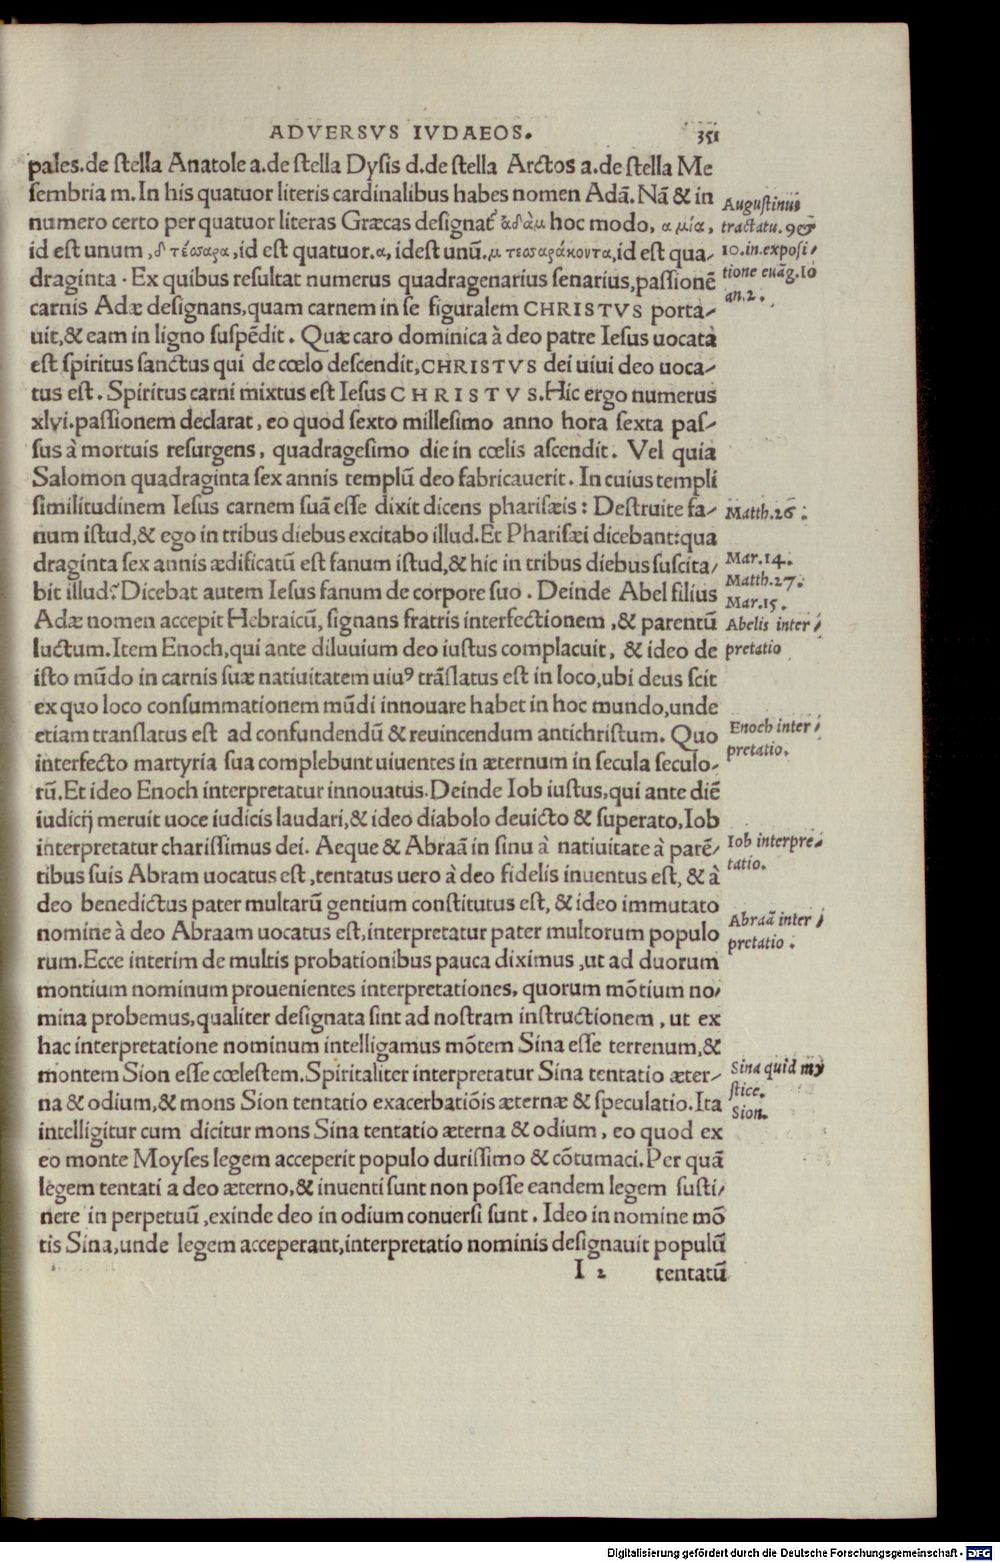 ADVERSVS IVDAEOS. 351
pales.de stella Anatole a.de stella Dysis d.de stella Arctos a.de stella Me
sembria m.In his quatuor literis cardinalibus habes nomen Adā. Nā & in
numero certo per quatuor literas Græcas designat᷒ ἀδὰμ hoc modo, α μία,
id est unum ,δ τέσσαρα,id est quatuor.α, idest unū.μ τεσσαράκοντα,id est qua-
draginta . Ex quibus resultat numerus quadragenarius senarius,passionē
carnis Adæ designans,quam carnem in se figuralem CHRISTVS porta-
uit,& eam in ligno suspēdit . Quæ caro dominica à deo patre Iesus uocata
est spiritus sanctus qui de cœlo descendit,CHRISTVS dei uiui deo uoca-
tus est . Spiritus carni mixtus est Iesus CHRISTVS.Hic ergo numerus
xlvi.passionem declarat, eo quod sexto millesimo anno hora sexta pas-
sus à mortuis resurgens, quadragesimo die in cœlis ascendit. Vel quia
Salomon quadraginta sex annis templū deo fabricauerit. In cuius templi
similitudinem Iesus carnem suā esse dixit dicens pharisæis: Destruite fa-
num istud,& ego in tribus diebus excitabo illud.Et Pharisæi dicebant:qua
draginta sex annis ædificatū est fanum istud,& hic in tribus diebus suscita/
bit illud? Dicebat autem Iesus fanum de corpore suo . Deinde Abel filius
Adæ nomen accepit Hebraicū, signans fratris interfectionem ,& parentū
luctum.Item Enoch,qui ante diluuium deo iustus complacuit, & ideo de
isto mūdo in carnis suæ natiuitatem uiuꝰ trāslatus est in loco,ubi deus scit
ex quo loco consummationem mūdi innouare habet in hoc mundo,unde
etiam translatus est ad confundendū & reuincendum antichristum. Quo
interfecto martyria sua complebunt uiuentes in æternum in secula seculo-
rū.Et ideo Enoch interpretatur innouatus.Deinde Iob iustus,qui ante diē
iudicij meruit uoce iudicis laudari,& ideo diabolo deuicto & superato,Iob
interpretatur charissimus dei. Aeque & Abraā in sinu à natiuitate à parē/
tibus suis Abram uocatus est ,tentatus uero à deo fidelis inuentus est, & à
deo benedictus pater multarū gentium constitutus est, & ideo immutato
nomine à deo Abraam uocatus est,interpretatur pater multorum populo
rum.Ecce interim de multis probationibus pauca diximus ,ut ad duorum
montium nominum prouenientes interpretationes, quorum mōtium no/
mina probemus,qualiter designata sint ad nostram instructionem , ut ex
hac interpretatione nominum intelligamus mōtem Sina esse terrenum,&
montem Sion esse cœlestem.Spiritaliter interpretatur Sina tentatio æter-
na & odium,& mons Sion tentatio exacerbatiōis æternæ & speculatio.Ita
intelligitur cum dicitur mons Sina tentatio æterna & odium, eo quod ex
eo monte Moyses legem acceperit populo durissimo & cōtumaci.Per quā
legem tentati a deo æterno,& inuenti sunt non posse eandem legem susti/
nere in perpetuū ,exinde deo in odium conuersi sunt. Ideo in nomine mō
tis Sina,unde legem acceperant,interpretatio nominis designauit populū
I 2 tentatū
Augustinus
tractatu. 9 &
10.in.exposi/
tione euāg.Io
an.2.
Matth.26 :
Mar.14.
Matth.27.
Mar.15.
Abelis inter/
pretatio
Enoch inter/
pretatio.
Iob interpre-
tatio.
Abraā inter/
pretatio.
Sina quid my
stice.
Sion.
Digitalisierung gefördert durch die Deutsche Forschungsgemeinschaft - DFG